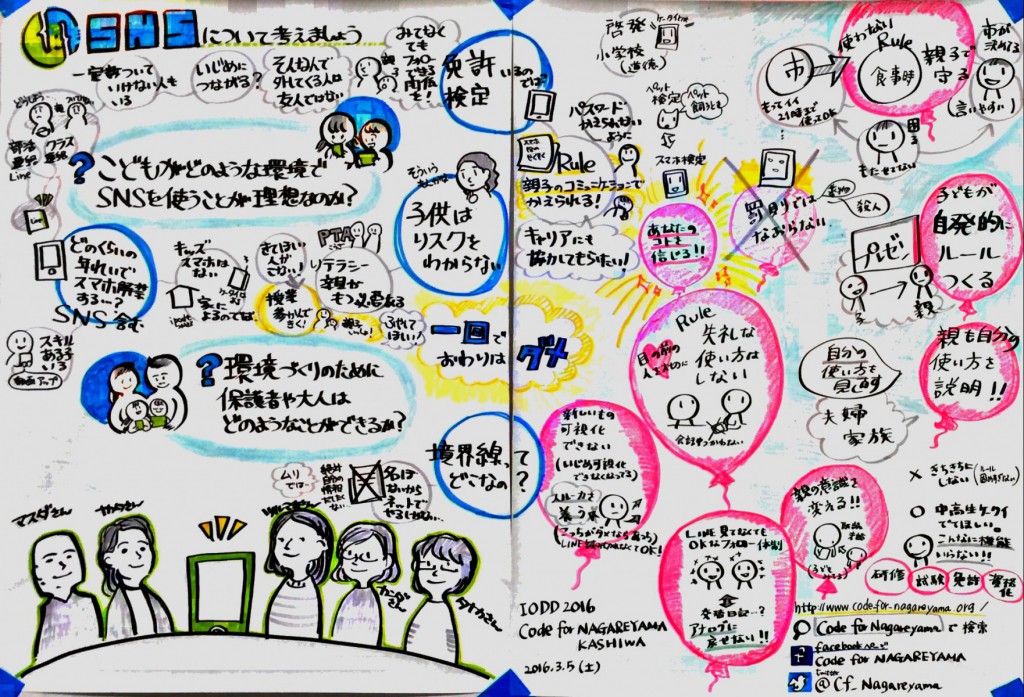 SNSについて考えましょう
一定数ついて
いけない人も
いる
いじめに
つながる?
そんなんで
外してくる人は
友人ではない
みてなく
ても
フォロー
できる
関係
を!
免許いるのでは?
検定
部活
連絡
クラス
連絡
Line
?こどもがどのような環境で
SNSを使うことが理想なのか?
子供は
リスクを
わからない
どのくらい
の年れいで
スマホ解禁
する…?
SNS含む
キッズ
スマホは
ない
家に
よるのでは
きてほしい
人が
こない!
PTA
リテラシー
親が
もつ必要ある
授業
参かんで
きく!
ふやして
ほしい!
一回で
おわりは
ダメ
スキル
ある子
いる
動画アップ
?環境づくりのために
保護者や大人は
どのようなことができるか?
境界線って
どこなの?
ムリ
では
マスダさん
啓発
小学校
(道徳)
パスワード
かえられない
ように
ペット
検定
スマホ検定
Rule
親子のコミュニケーションで
かえられる!
キャリアにも
協力してもらいたい!
あなたの
コトを
信じる!!
罰則では
なおらない
使わない
Rule
食事時
親子で
守る
市
もってイイ
21時まで
使ってOK
市が
決める
(言いやすい)
困る
もたせてない
殺人
プレゼン
子
親
子どもが
自発的に
ルール
つくる
Rule
目の前の
人を大切に
失礼な
使い方は
しない
会話中つかわない
自分の
使い方を
見直す
夫婦
家族
親も自分の
使い方を
説明!!
新しいもの
可視化
できない
(いじめ可視化
できなくなってる)
スルー力を
養う
LINE見てなくても
OKなフォロー体制
交換日記…?
アナログに
戻せない!!
親の意識を
変える!!
× きちきちに
しない
○ 中高生ケータイ
もってほしい。
こんなに機能
いらない!!
研修 試験 免許 資格化
IODD 2016
Code for NAGAREYAMA
KASHIWA
2016.3.5(土)
http://www.code-for-nagareyama.org/
Code for Nagareyama で検索
facebookページ
Code for NAGAREYAMA
twitter
@Cf_Nagareyama